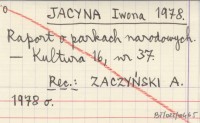 JACYNA Iwona 1978.
Raport o parkach narodowych.
— Kultura 16, nr 37.
Rec.: ZACZYŃSKI A.
1978 o.